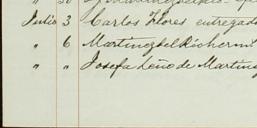 Julio 3 Carlos Flores entregado
" 6 Martinez del Rio herm
" " Josefa Leño de Martin